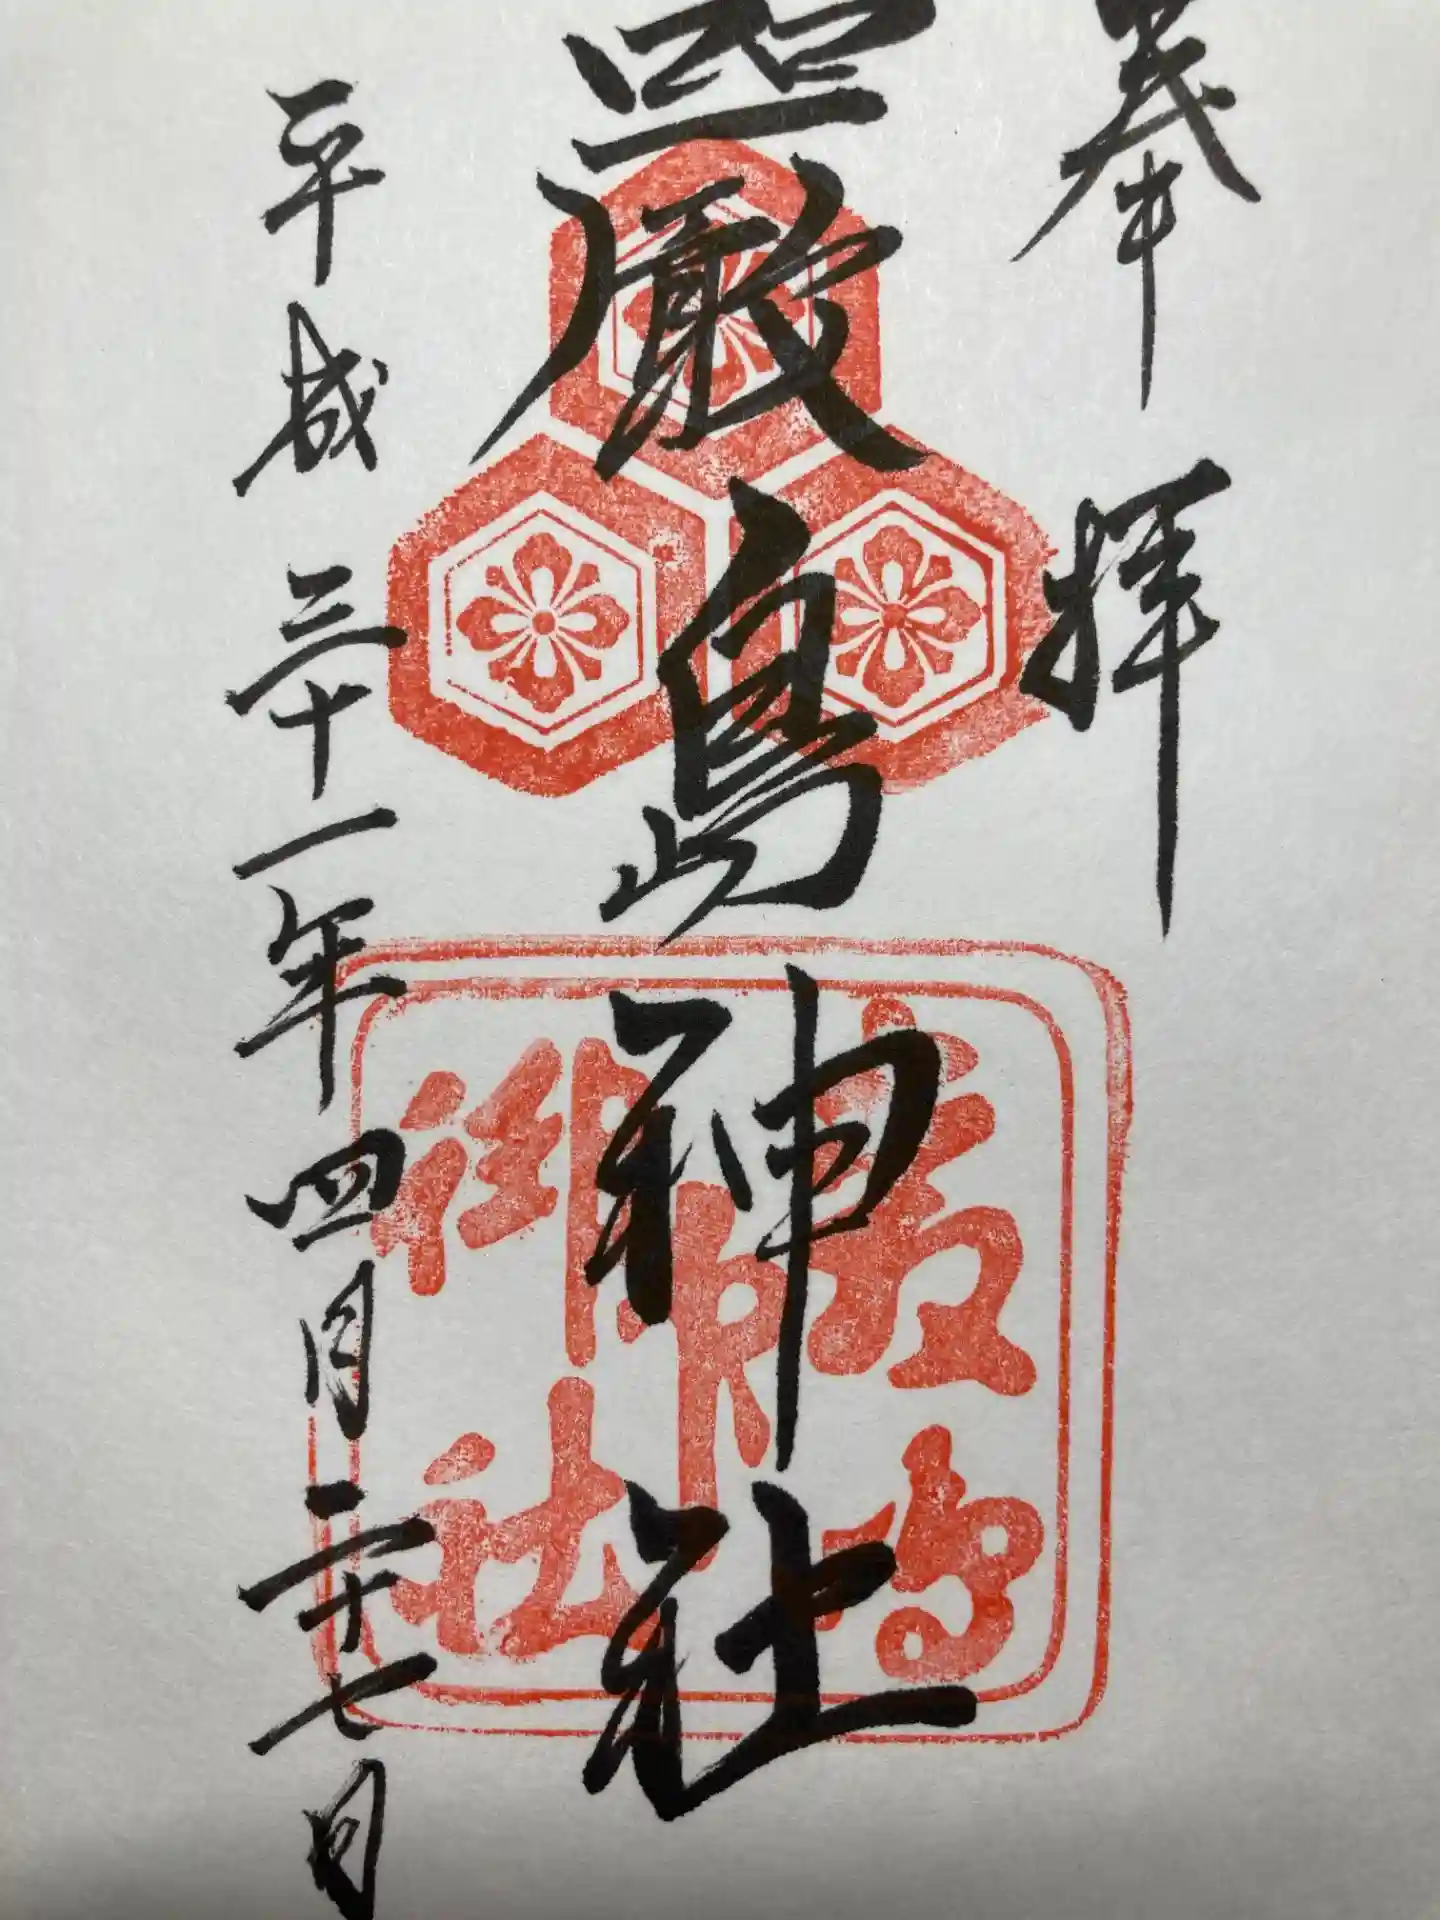 奉拝
嚴島神社
嚴島
御社
平成三十一年四月二十七日